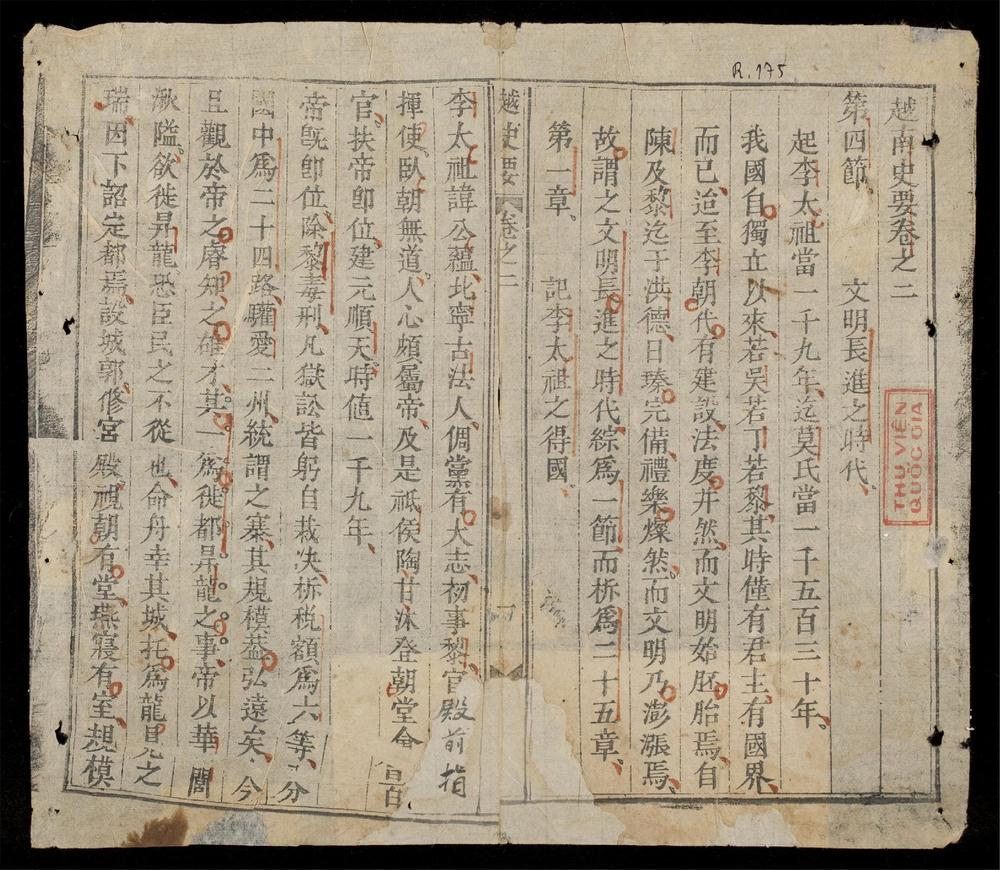 R.175
越南史要卷之二
第四節、 文明長進之時代、
起李太祖當一千九年、迄莫氏當一千五百三十年。
我國自獨立以來、若吳若丁若黎、其時僅有君主、有國界、
而已、迨至李朝代有建設、法度井然、而文明始胚胎焉、自
陳及黎迄于洪德、日臻完備、禮樂燦然、而文明乃澎漲焉、
故謂之文明長進之時代、綜爲一節、而析爲二十五章、
第一章、 記李太祖之得國、
THƯ VIỆN
QUỐC GIA
越史要 卷之二 一
李太祖諱公蘊、北寧古法人、倜黨有大志、初事黎官殿前指
揮使、臥朝無道、人心頗屬帝、及是祇侯陶甘沐登朝堂命百
官、扶帝卽位、建元順天、時値一千九年、
帝旣卽位、除黎毒刑、凡獄訟皆躬自裁决、析稅額爲六等、分
國中爲二十四路、驩愛二州、統謂之寨、其規模葢弘遠矣、今
且觀於帝之睿知之確才、其一爲徙都昇龍之事、帝以華閭
湫隘、欲徙昇龍恐臣民之不從也、命舟幸其城、托爲龍見之
瑞、因下詔定都焉、設城郭、修宮殿、視朝有堂、燕寢有室、規模